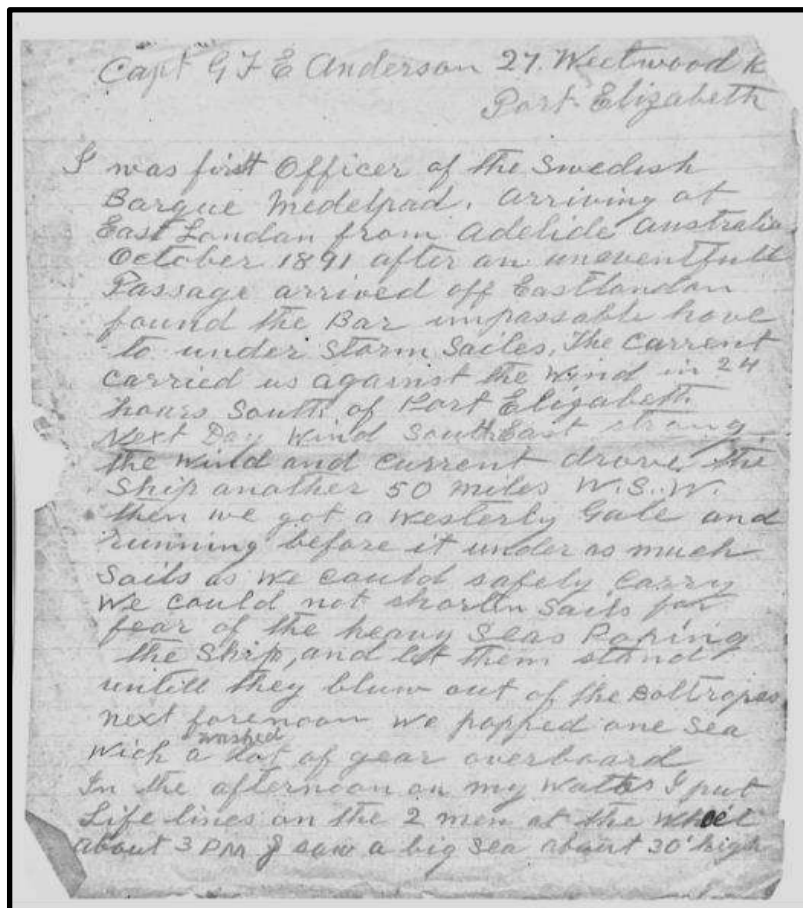 Capt G F E Anderson 27. Westwood
Port Elizabeth
I was first Officer of the Swedish
Barque Medelpad. Arriving at
East London from Adelide Australia
October 1891 after an uneventfull
Passage arrived off Eastlondon
found the Bar impassable hove
to under Storm Sailes, The Current
carried us against the Wind in 24
hours South of Port Elizabeth
Next Day Wind SouthEast strong
the Wind and current drove the
Ship another 50 miles W.S.W.
then we got a Westerly Gale and
running before it under as much
Sails as we could safely carry
We could not shorten Sails for
fear of the heavy Seas Poping
the Ship, and let them stand
untill they bluw out of the Boltropes
next forenoon we popped one Sea
wich washed a lot of gear overboard
In the afternoon on my I put
Life lines on the 2 men at the Wheel
about 3 PM I saw a big Sea about 30' high